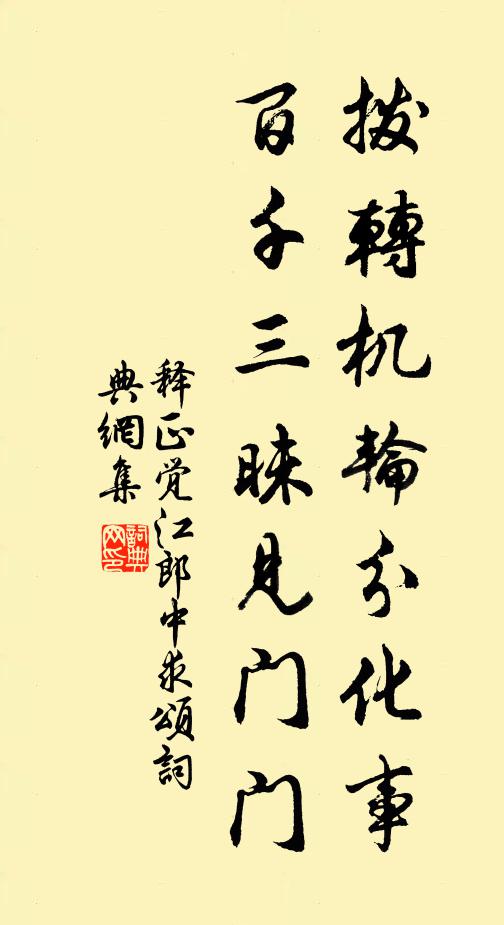 拨轉机輪分化事
百千三昧見门门
释正觉江郎中求頌詞
典網集
詞典网印